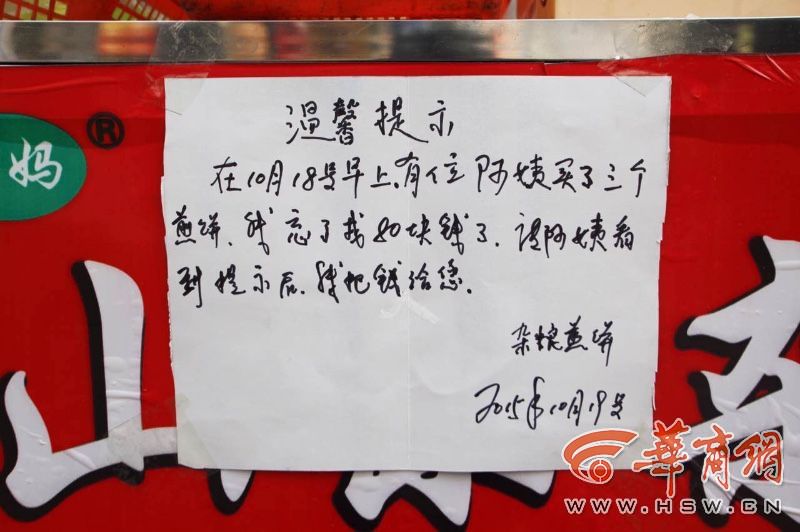 温馨提示
在10月18号早上,有位阿姨买了三个
煎饼,我忘了找80块钱了,请阿姨看
到提示后,我把钱给您.
杂粮煎饼
2015年10月19号
妈
®
山
東
華商網
WWW.HSW.CN